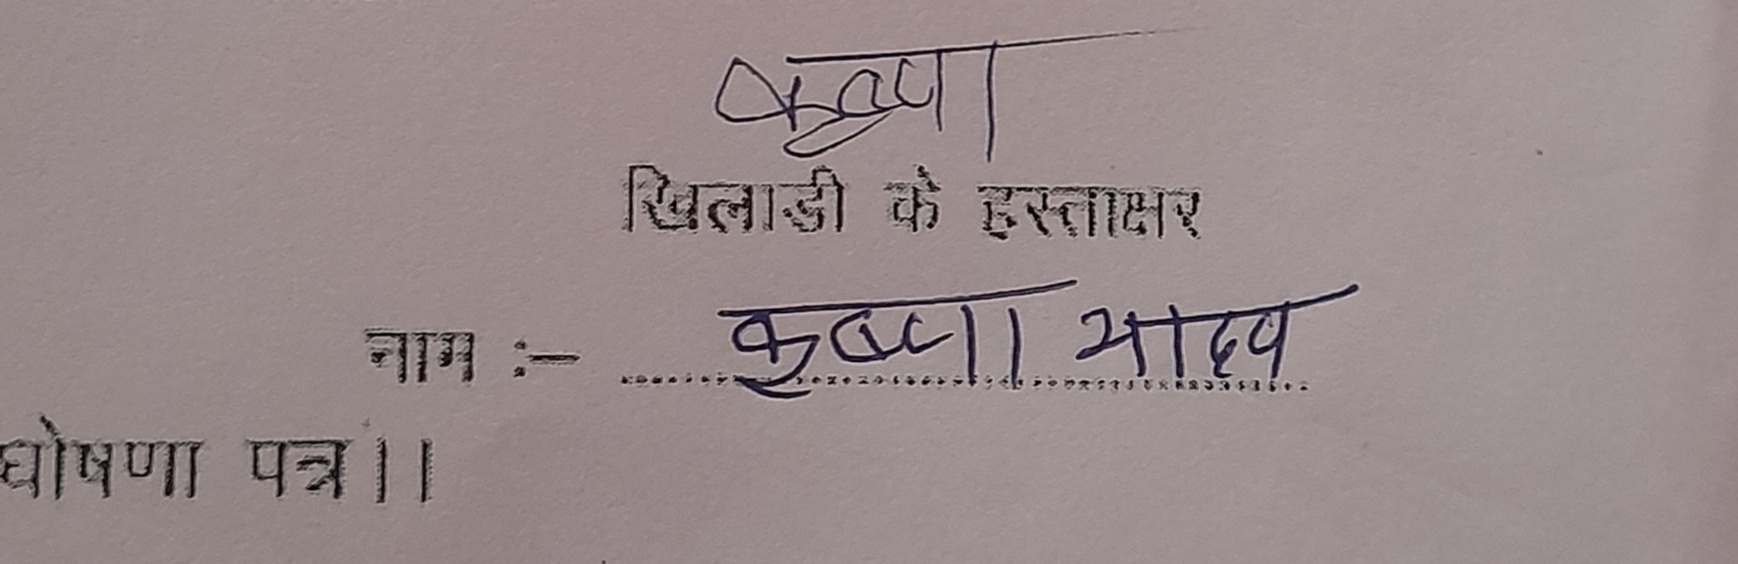 कृष्णा
खिलाडी के हस्ताक्षर
नाम :- कृष्णा यादव
घोषणा पत्र।।